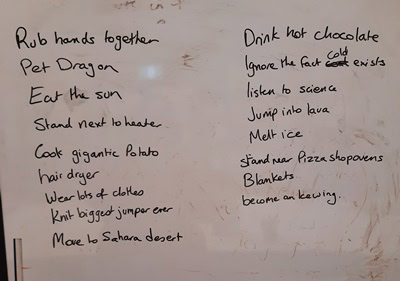 Rub hands together
Pet Dragon
Eat the sun
Stand next to heater
Cook gigantic Potato
hair dryer
Wear lots of clothes
Knit biggest jumper ever
Move to Sahara desert
Drink hot chocolate
Ignore the fact cold exists
listen to science
Jump into lava
Melt ice
stand near Pizza shop ovens
Blankets
become an